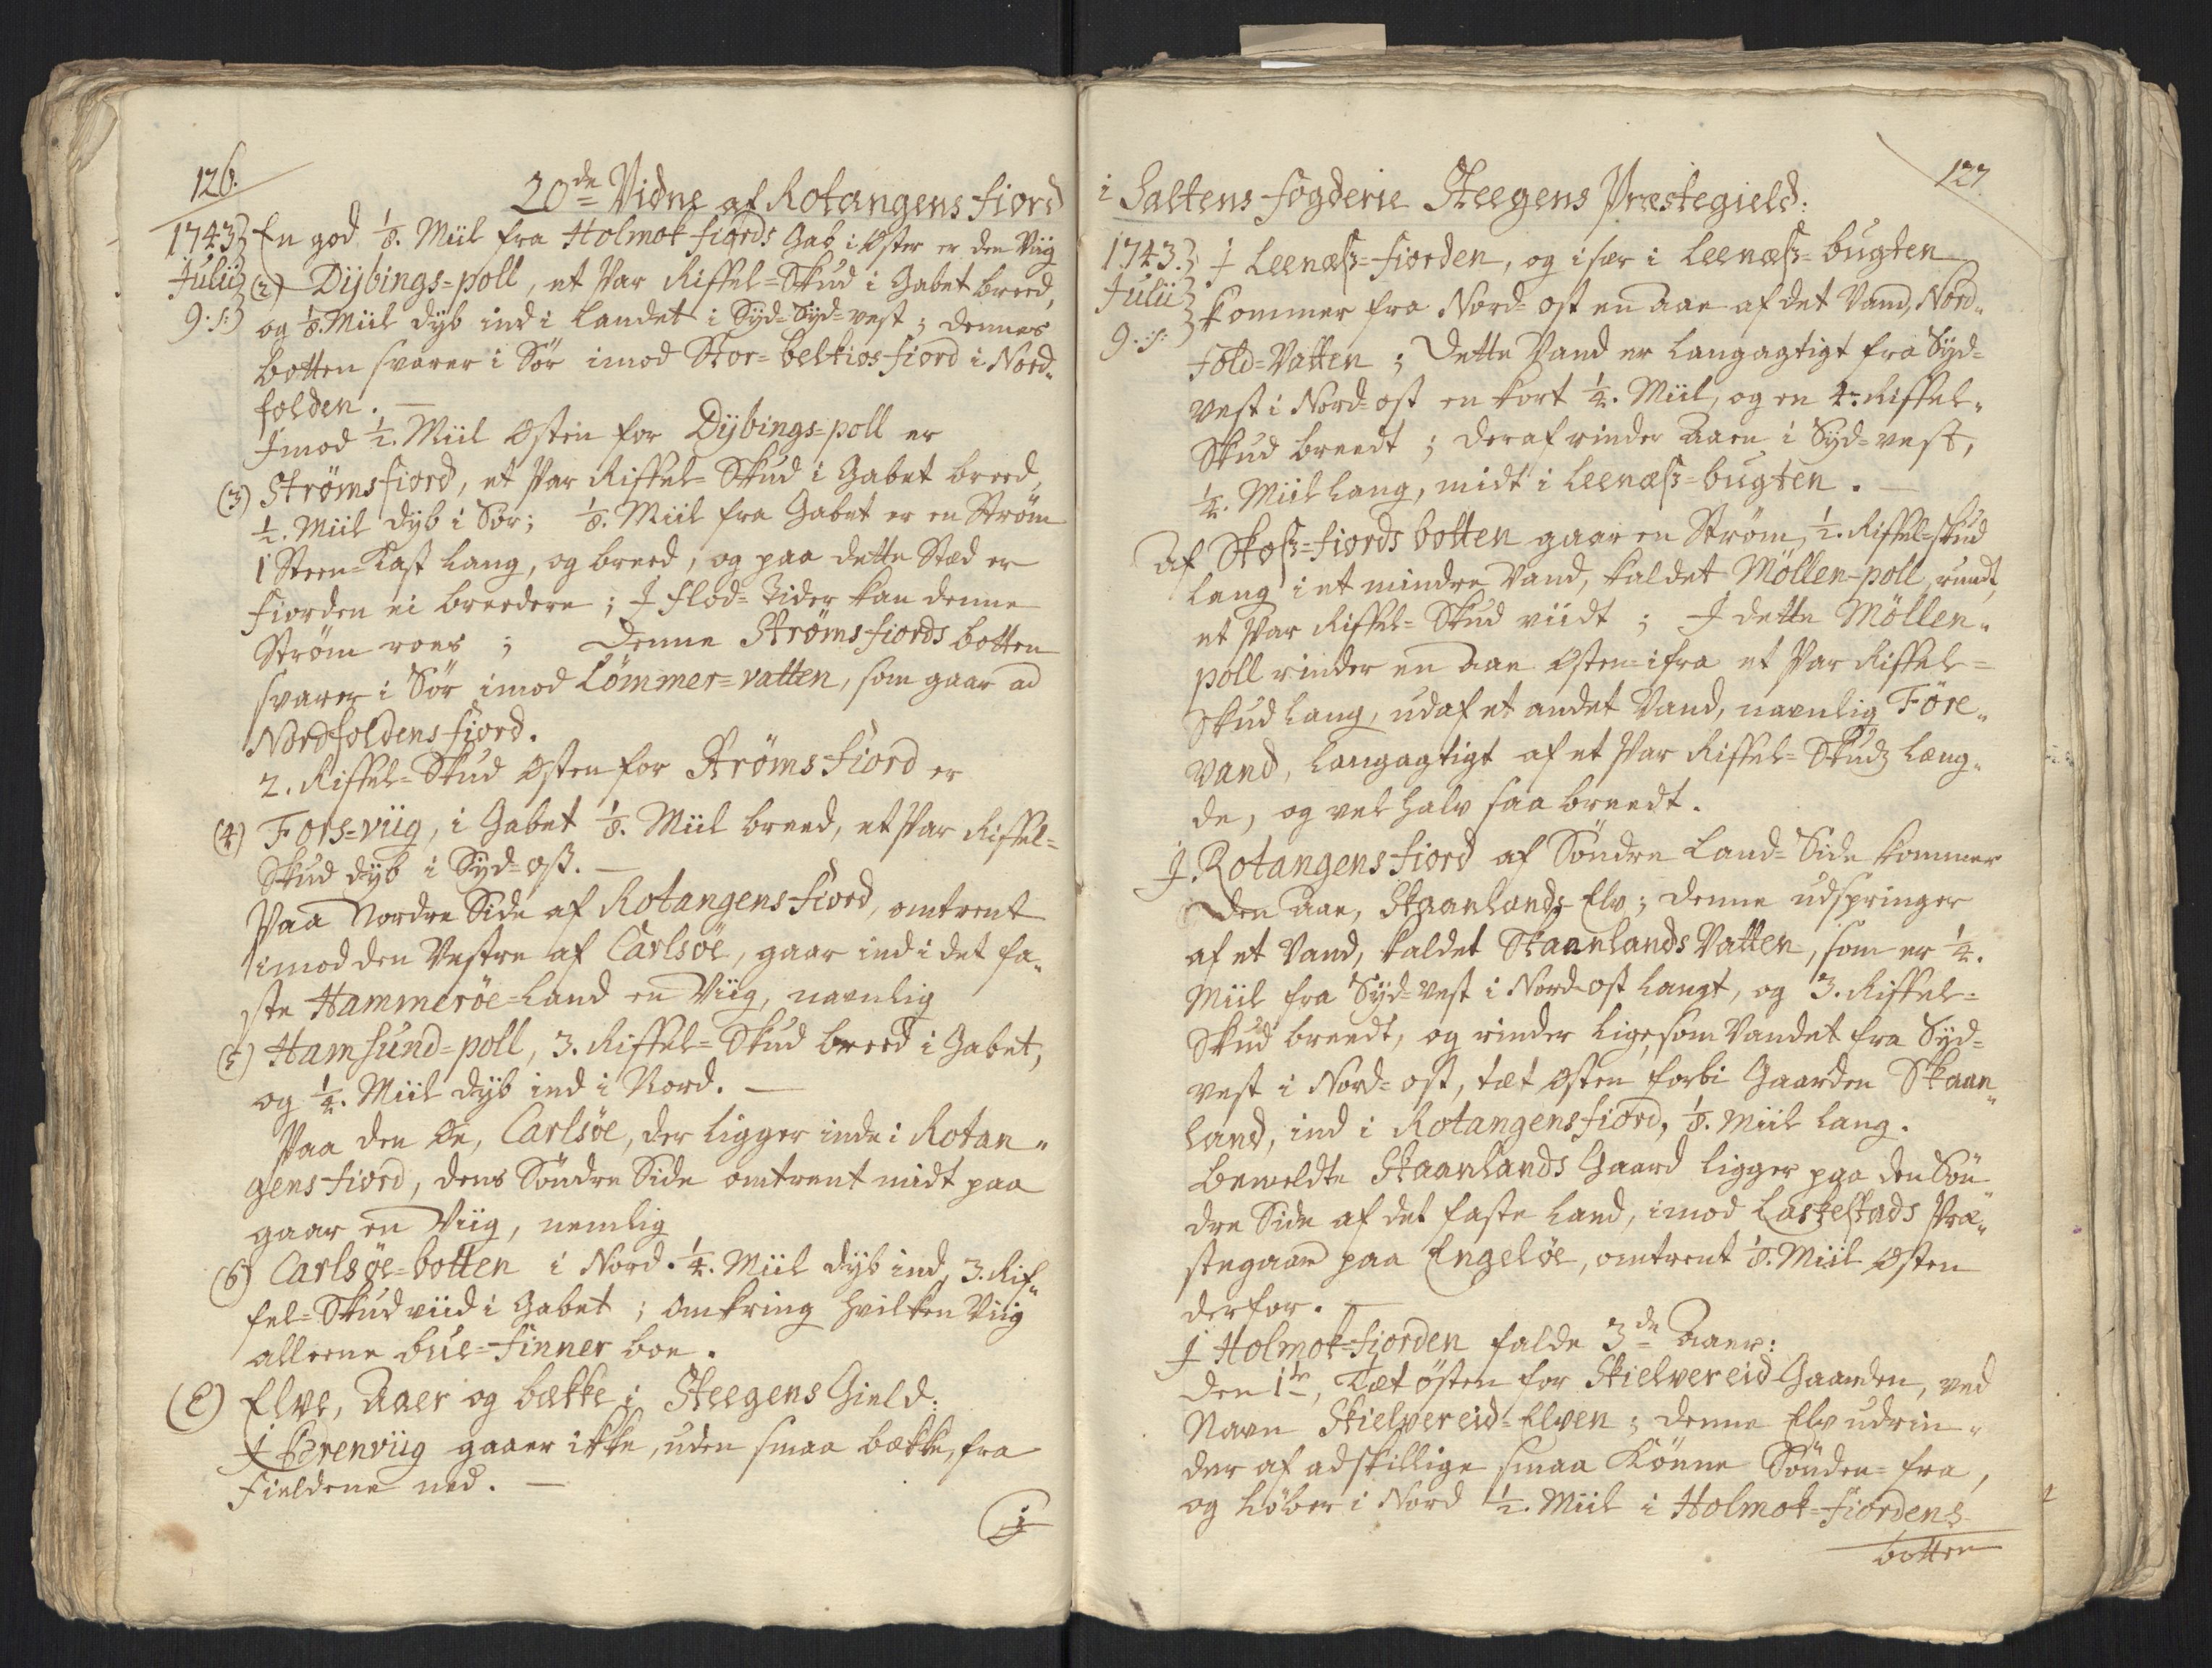 126.
20de Vidne af Rotangens fiord
1743 En god 1/8. Miil fra Holmok fiords Gab i Øster er den Viig
Julii (2) Dÿbings=poll, et Par Riffel=Skud i Gabet breed,
9.s: og 1/8. Miil dÿb ind i Landet i Sÿd=Sÿd=vest; dennes
botten svarer i Sør imod Stor=belkios fiord i Nord-
folden. —
Imod 1/2. Miil Østen for Dÿbings=poll er
(3) Strømsfiord, et Par Riffel=Skud i Gabet breed,
1/2. Miil dÿb i Sør; 1/8. Miil fra Gabet er en Strøm
1 Steen=Kast lang, og breed, og paa dette Stæd er
fiorden ei breedere; I flod=Tider kan denne
Strøm roes; Denne Strømsfiords botten
svarer i Sør imod Lømmer=vatten, som gaar ad
Nordfoldens fiord.
2. Riffel=Skud Østen for Strømsfiord er
(4) Fors=viig, i Gabet 1/8. Miil breed, et Par Riffel=
Skud dÿb i Sÿd=ost. —
Paa Nordre Side af Rotangens fiord, omtrent
imod den Vestre af Carlsøe, gaar ind i det fa-
ste Hammerøe=Land en Viig, navnlig
(5) Hamsund=poll, 3. Riffel=Skud breed i Gabet,
og 1/4. Miil dÿb ind i Nord. —
Paa den Øe, Carlsøe, der ligger inde i Rotan-
gens fiord, dens Søndre Side omtrent midt paa
gaar en Viig, nemlig
(6) Carlsøe=botten i Nord. 1/4. Miil dÿb ind, 3. Rif-
fel=Skud viid i Gabet; omkring hvilken Viig
alleene bue=finner boe.
(E) Elve, Aaer og bække i Steegens Gield:
I Brenviig gaaer ikke, uden smaa bække, fra
Fieldene ned. —
I
127.
i Saltens fogderie Steegens Præstegield:
1743. I Leenæss=fiorden, og især i Leenæss=bugten
Julii kommer fra Nord=ost en Aae af det Vand, Nord-
9.s: Fold=Vatten; Dette Vand er langagtigt fra Sÿd=
vest i Nord=ost en kort 1/4. Miil, og en 4. Riffel-
Skud breedt; deraf rinder Aaen i Sÿd=vest,
1/4. Miil lang, midt i Leenæss=bugten. —
Af Skoss=fiords botten gaar en Strøm, 1/2. Riffel=skud
lang i et mindre Vand, kaldet Møllen=poll, rundt,
et Par Riffel=Skud viidt; I dette Møllen-
poll rinder en Aae Østen=ifra et Par Riffel=
Skud lang, ud af et andet Vand, navnlig Føre-
vand, langagtigt af et Par Riffel=Skuds læng-
de, og vel halv saa breedt.
I Rotangens fiord af Søndre Land=Side kommer
den Aae, Skaanlands=Elv; denne udspringer
af et Vand, kaldet Skaanlands Vatten, som er 1/4.
Miil fra Sÿd=vest i Nord=ost langt, og 3. Riffel=
Skud breedt, og rinder ligesom Vandet fra Sÿd=
vest i Nord=ost, tæt Østen forbi Gaarden Skaan-
land, ind i Rotangensfiord, 1/8. Miil lang.
bemeldte Skaanlands Gaard ligger paa den Søn-
dre Side af det faste Land, imod Laskestads Præ-
stegaard paa Engeløe, omtrent 1/8. Miil Østen
derfor. —
I Holmok=fiorden falde 3de Aaer:
den 1te, Tæt østen for Skielvereid Gaarden, ved
Navn Skielvereid=Elven; denne Elv udrin-
der af adskillige smaa Kønne Sønden=fra,
og løber i Nord 1/2. Miil i Holmok=fiordens
botten